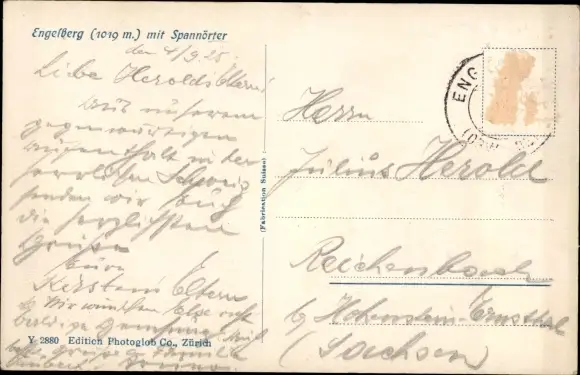 Engelberg (1019 m.) mit Spannörter
den 4/9.25
Libe Herolds Eltern!
Aus unserem
gegenwärtigen
Aufenthalt in der
herrlichen Schweiz
senden wir Euch
die herzlichsten
Grüße
Eure
Kersten Eltern
Wir wünschen Else
baldige
Y 2880 Edition Photoglob Co., Zürich
(Fabrication Suisse)
ENG
Herrn
Julius Herold
Reichenbach
b/ Hohenstein-Ernstthal
(Sachsen)